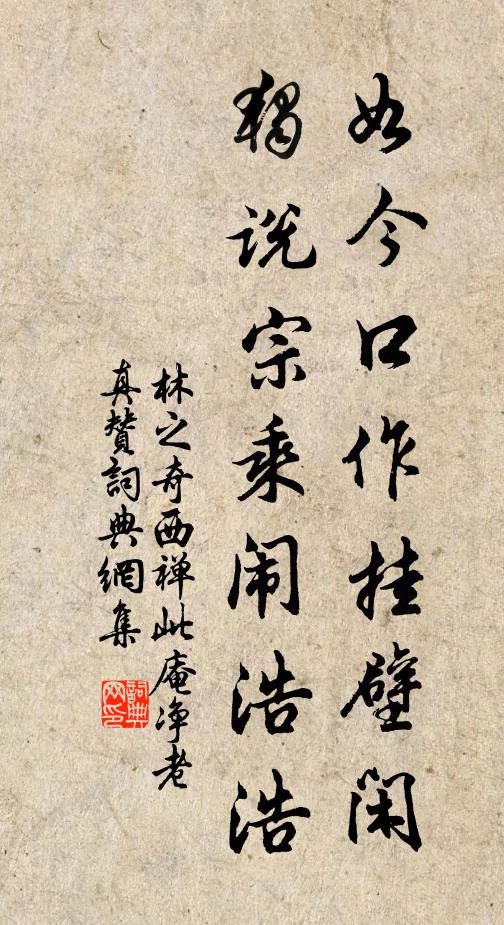 如今口作挂壁闲
独说宗乘闹浩浩
林之奇西禅此庵净老
真赞詞典網集
詞典网印